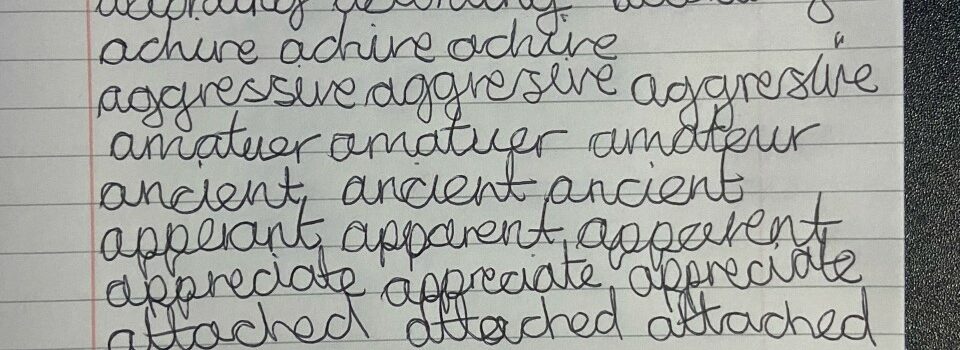 according according
achive achive achive
aggressive aggresive aggresive
amatuer amatuer amateur
ancient, ancient ancient
apperant, apparent, apparent,
appreciate appreciate, appreciate
attached attached attached